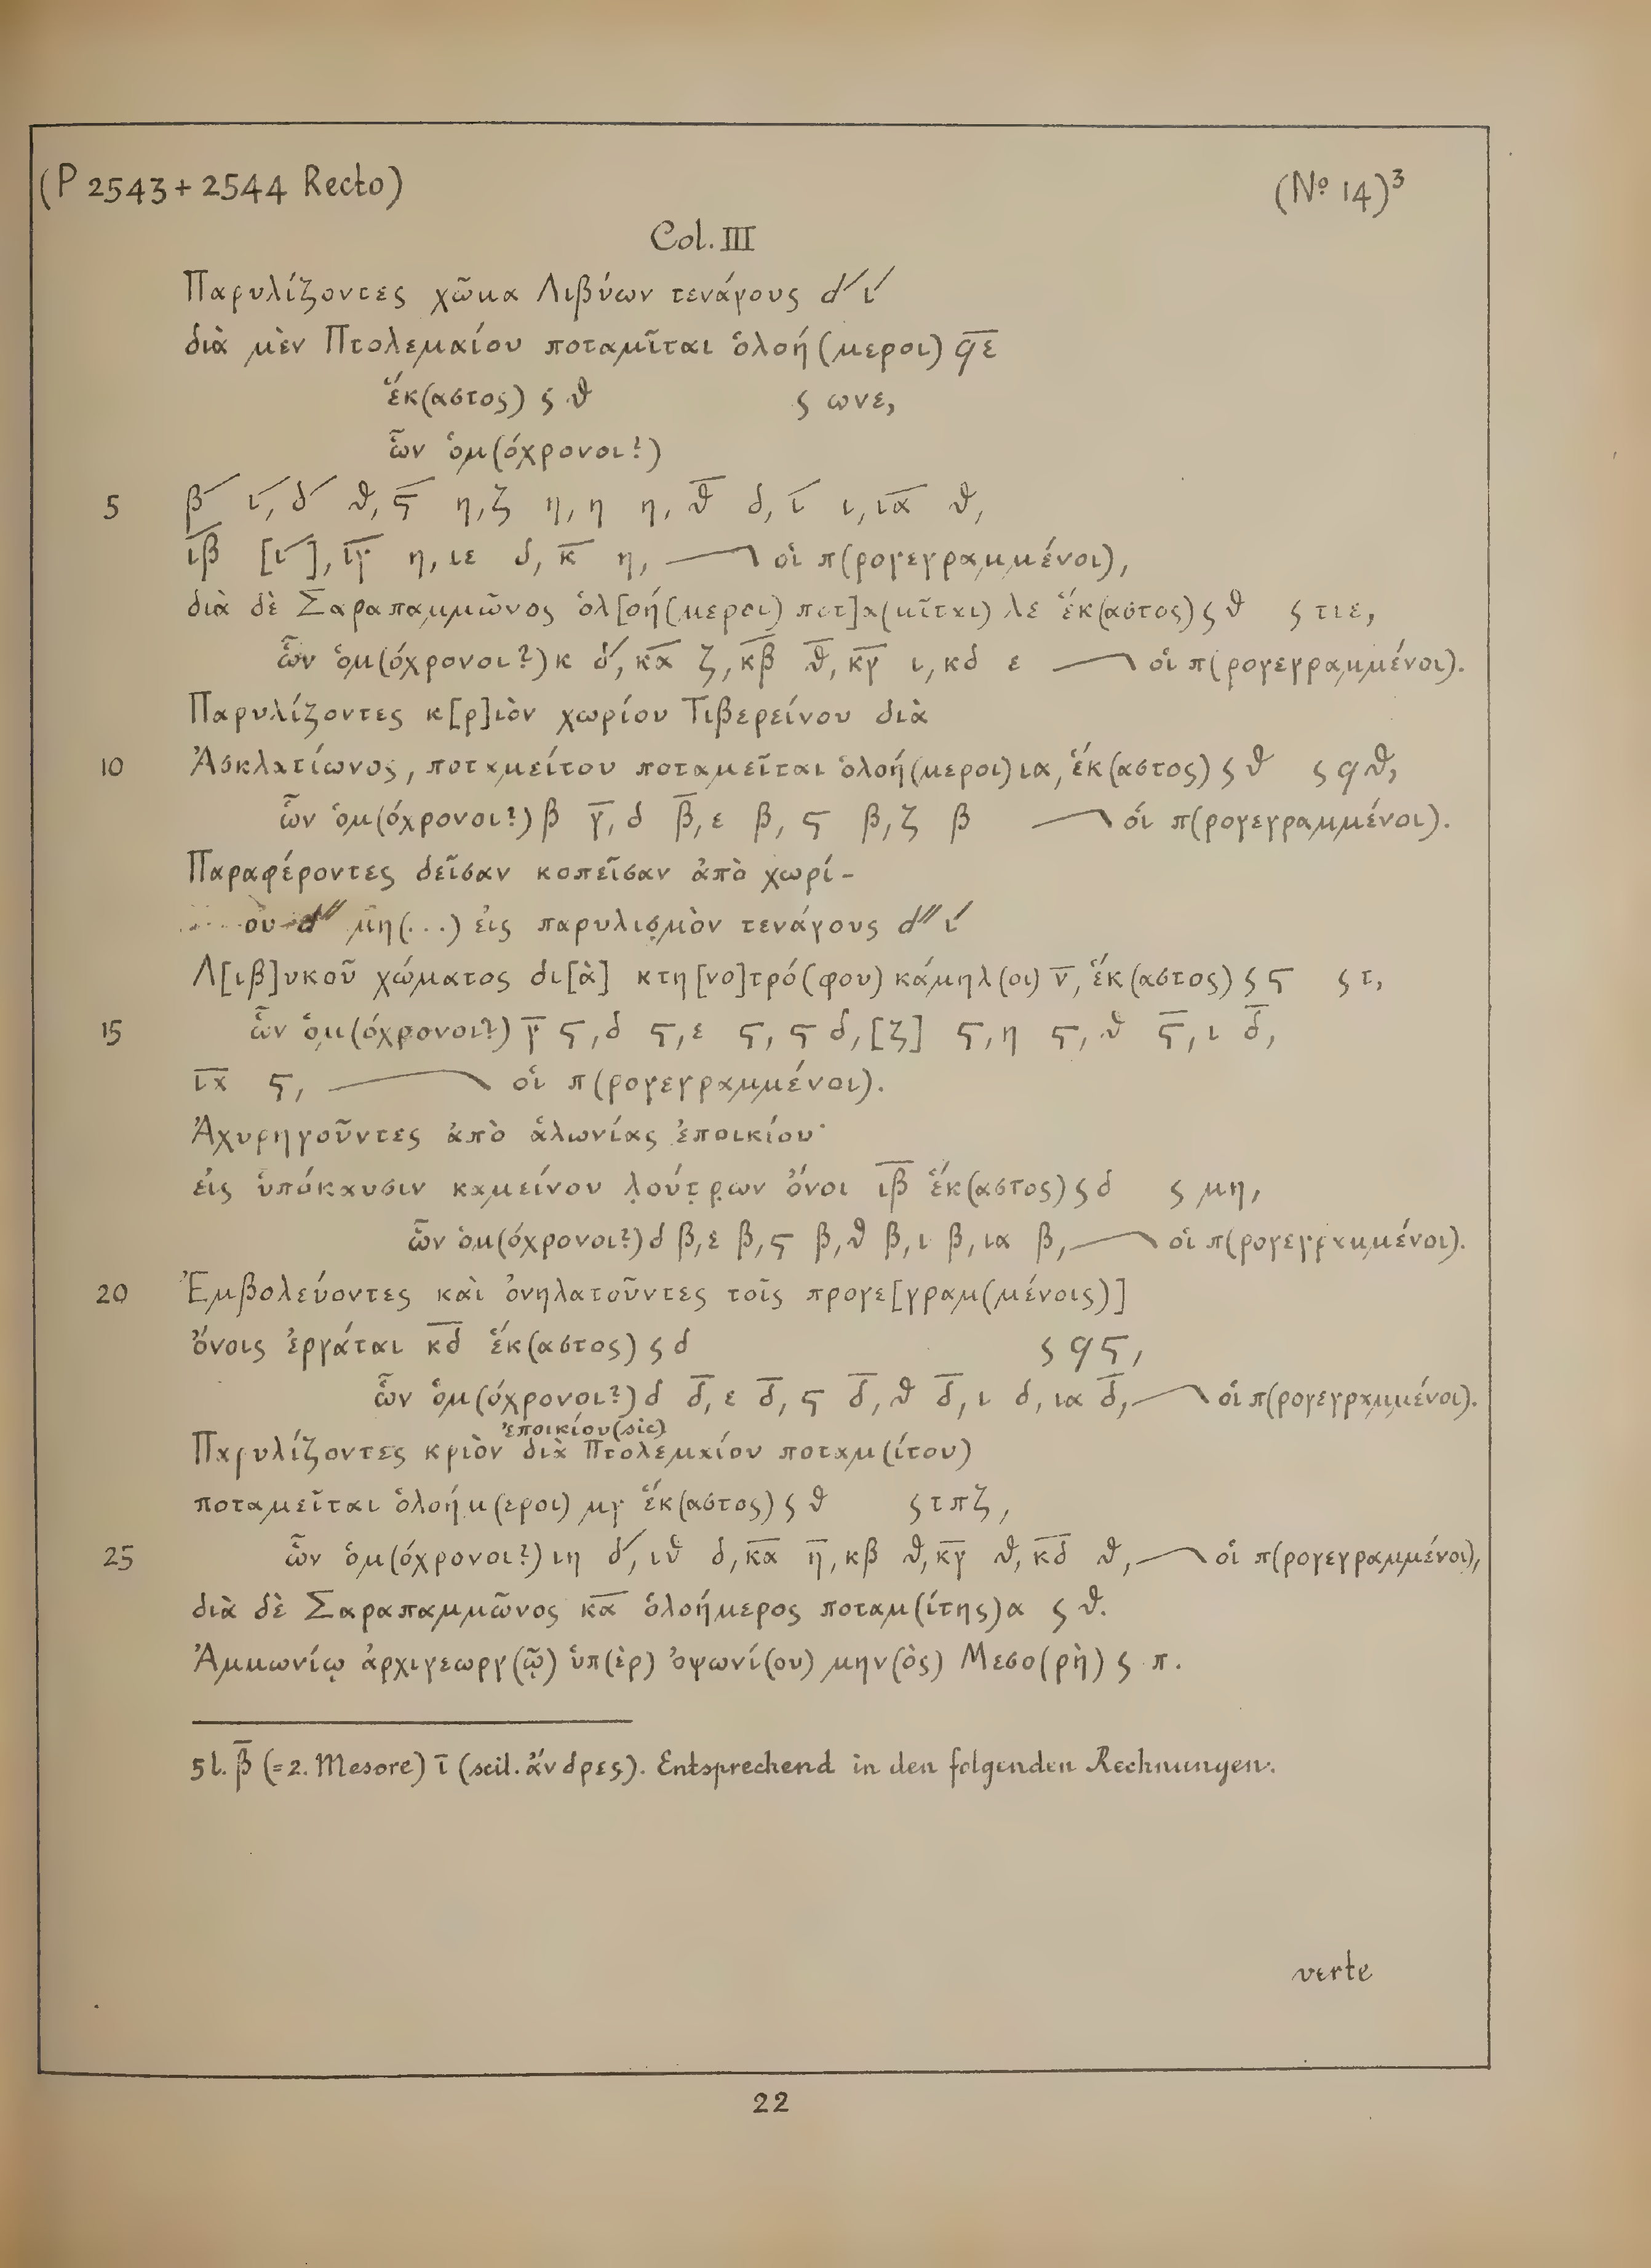 (P 2543 + 2544 Recto) (No 14)³
Col. III
Παρυλίζοντες χῶμα Λιβύων τενάγους d´ ι´
διὰ μὲν Πτολεμαίου ποταμῖται ὁλοή(μεροι) ϙ̅ε̅
ἕκ(αστος) ς θ ς ωνε,
ὧν ὁμ(όχρονοι?)
5 β̅ ι̅, δ̅ θ, ϛ̅ η, ζ η, η η, θ̅ δ, ι̅ ι, ι̅α̅ θ,
ι̅β̅ [ι̅], ι̅γ̅ η, ιε δ, κ̅ η, οἱ π(ρογεγραμμένοι),
διὰ δὲ Σαραπαμμῶνος ὁλ[οή(μεροι) ποτ]α(μῖται) λε ἕκ(αστος) ς θ ς τιε,
ὧν ὁμ(όχρονοι?) κ δ´, κ̅α̅ ζ, κ̅β̅ θ̅, κ̅γ̅ ι, κδ ε οἱ π(ρογεγραμμένοι).
Παρυλίζοντες κ[ρ]ιὸν χωρίου Τιβερείνου διὰ
10 Ἀσκλατίωνος, ποταμείτου ποταμεῖται ὁλοή(μεροι) ια, ἕκ(αστος) ς θ ς ϙθ,
ὧν ὁμ(όχρονοι?) β γ̅, δ β̅, ε β, ϛ β, ζ β οἱ π(ρογεγραμμένοι).
Παραφέροντες δεῖσαν κοπεῖσαν ἀπὸ χωρί-
ου d´´ μη(...) εἰς παρυλισμὸν τενάγους d´´ ι´
Λ[ιβ]υκοῦ χώματος δι[ὰ] κτη[νο]τρό(φου) κάμηλ(οι) ν̅, ἕκ(αστος) ς ϛ ς τ,
15 ὧν ὁμ(όχρονοι?) γ̅ ϛ, δ ϛ, ε ϛ, ϛ δ, [ζ] ϛ, η ϛ, θ ϛ̅, ι δ̅,
ι̅α̅ ϛ, οἱ π(ρογεγραμμένοι).
Ἀχυρηγοῦντες ἀπὸ ἁλωνίας ἐποικίου
εἰς ὑπόκαυσιν καμείνου λ̣ούτ̣ρ̣ων ὄνοι ι̅β̅ ἕκ(αστος) ς δ ς μη,
ὧν ὁμ(όχρονοι?) δ β, ε β, ϛ β, θ β, ι β, ια β, οἱ π(ρογεγραμμένοι).
20 Ἐμβολεύοντες καὶ ὀνηλατοῦντες τοῖς προγε[γραμ(μένοις)]
ὄνοις ἐργάται κ̅δ̅ ἕκ(αστος) ς δ ς ϙϛ,
ὧν ὁμ(όχρονοι?) δ δ̅, ε δ̅, ϛ δ̅, θ δ̅, ι δ, ια δ̅, οἱ π(ρογεγραμμένοι).
ἐποικίου (sic)
Παρυλίζοντες κριὸν διὰ Πτολεμαίου ποταμ(ίτου)
ποταμεῖται ὁλοήμ(εροι) μγ ἕκ(αστος) ς θ ς τπζ,
25 ὧν ὁμ(όχρονοι?) ιη δ´, ιθ δ, κ̅α̅ η̅, κβ θ, κ̅γ̅ θ, κ̅δ̅ θ, οἱ π(ρογεγραμμένοι),
διὰ δὲ Σαραπαμμῶνος κ̅α̅ ὁλοήμερος ποταμ(ίτης) α ς θ.
Ἀμμωνίῳ ἀρχιγεωργ(ῷ) ὑπ(ὲρ) ὀψωνί(ου) μην(ὸς) Μεσο(ρὴ) ς π.
5 l. β̅ (= 2. Mesore) ι̅ (scil. ἄνδρες). Entsprechend in den folgenden Rechnungen.
verte
22